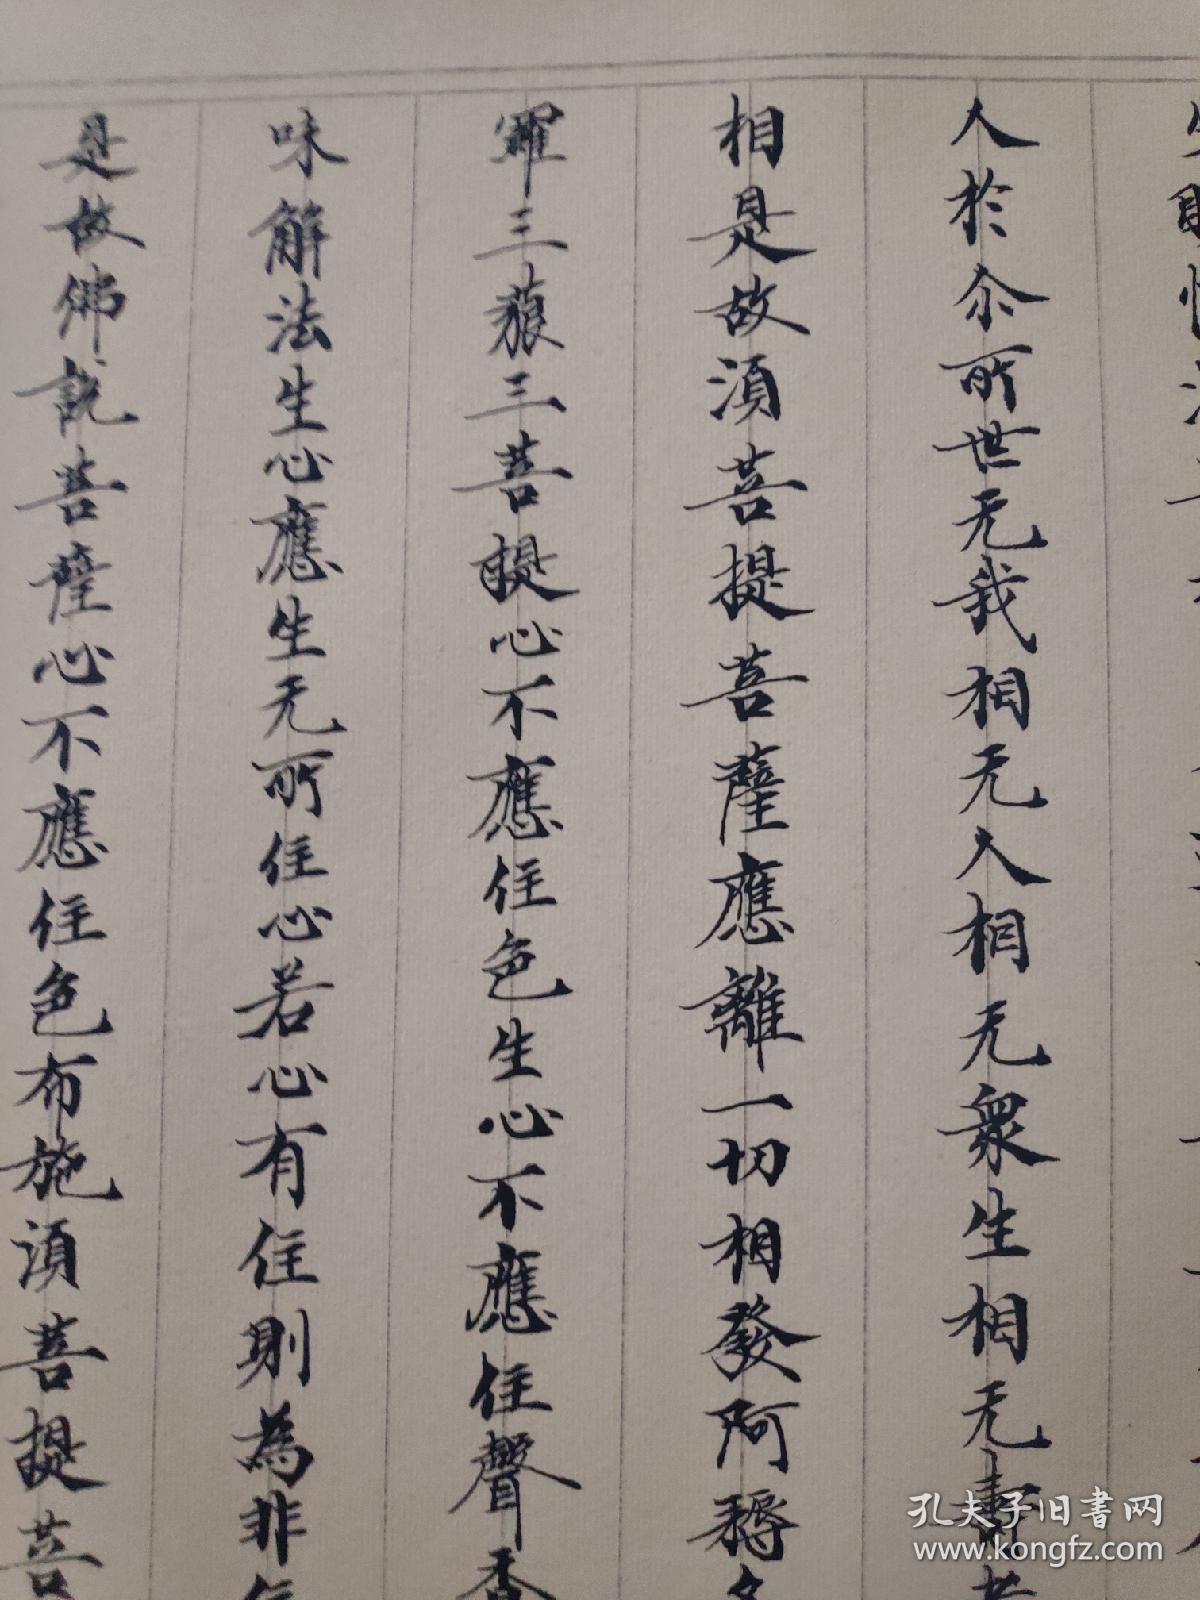 人於尒所世无我相无人相无衆生相无壽
相是故湏菩提菩薩應離一切相發阿耨多
羅三藐三菩提心不應住色生心不應住聲香
味觧法生心應生无所住心若心有住則為非住
是故佛説菩薩心不應住色布施湏菩提菩
孔夫子旧书网
www.kongfz.com